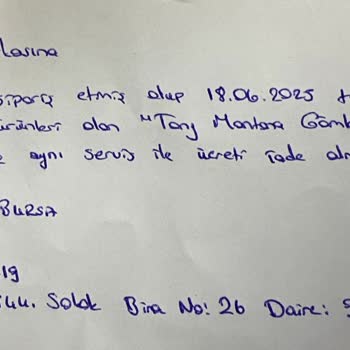 sipariş etmiş olup 18.06.2025 t
ürünleri olan "Tony Montana Gömle
aynı servis ile ücreti iade al
BURSA
19
44. Sokak Bina No: 26 Daire: 5